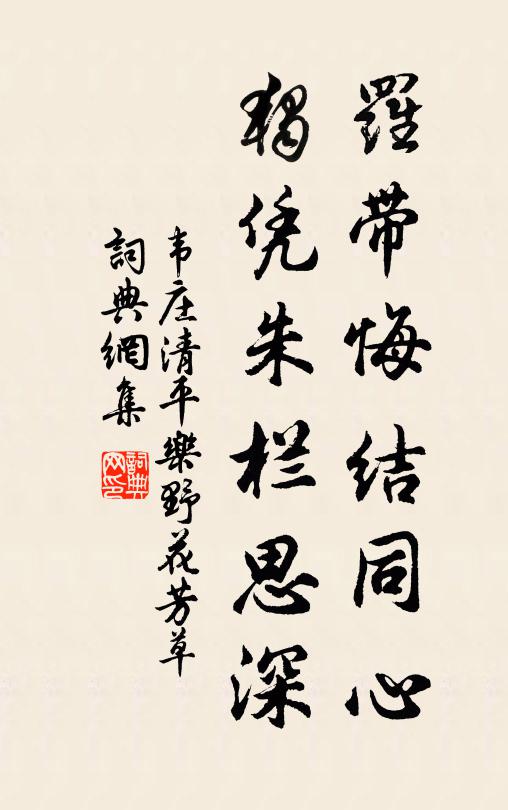 羅带悔结同心
獨凭朱栏思深
韦庄清平樂野花芳草
詞典網集
詞典网印